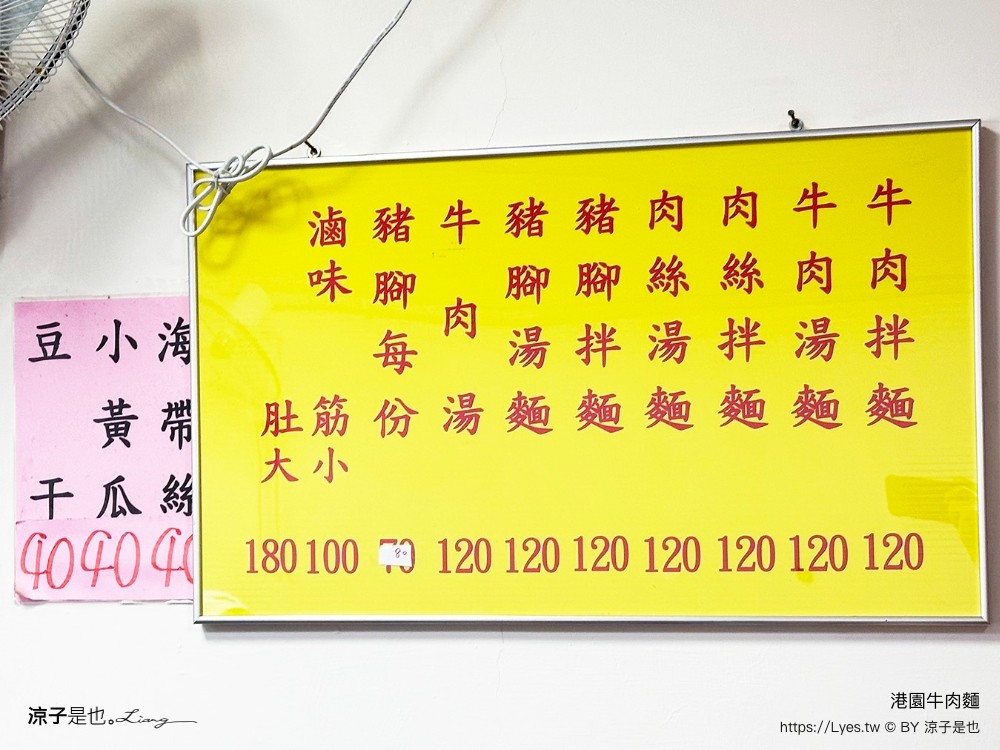 牛肉拌麵 120
牛肉湯麵 120
肉絲拌麵 120
肉絲湯麵 120
豬腳拌麵 120
豬腳湯麵 120
牛肉湯 120
豬腳每份 80
滷味
筋小 100
肚大 180
海帶絲 40
小黃瓜 40
豆干 40
涼子是也。Liang
港園牛肉麵
https://Lyes.tw © BY 涼子是也